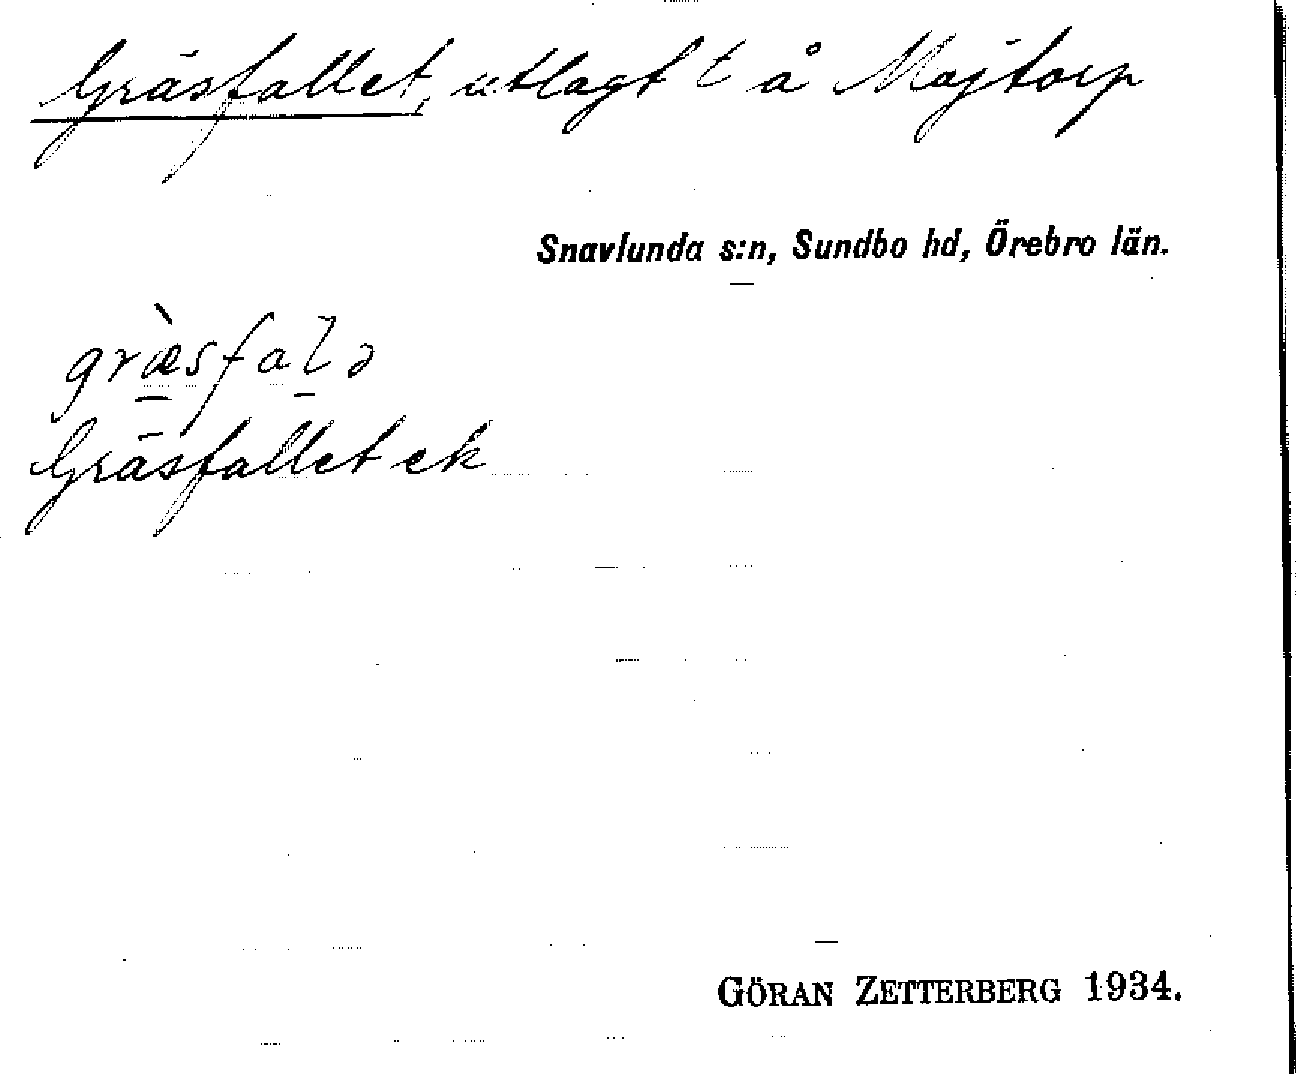 Gräsfallet, utlagt t å Majtorp
Snavlunda s:n, Sundbo hd, Örebro län.
græ̀sfalə
Gräsfallet ek
GÖRAN ZETTERBERG 1934.